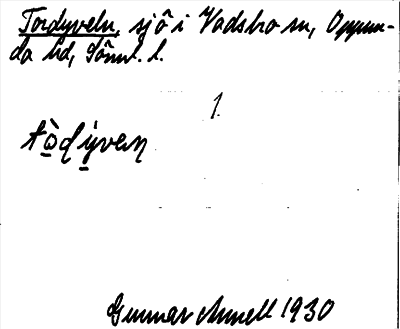 Tordyveln, sjö i Vadsbro sn, Oppun-
da hd, Sörml. l.
1.
tò̱di̱veṉ
Gunnar Annell 1930